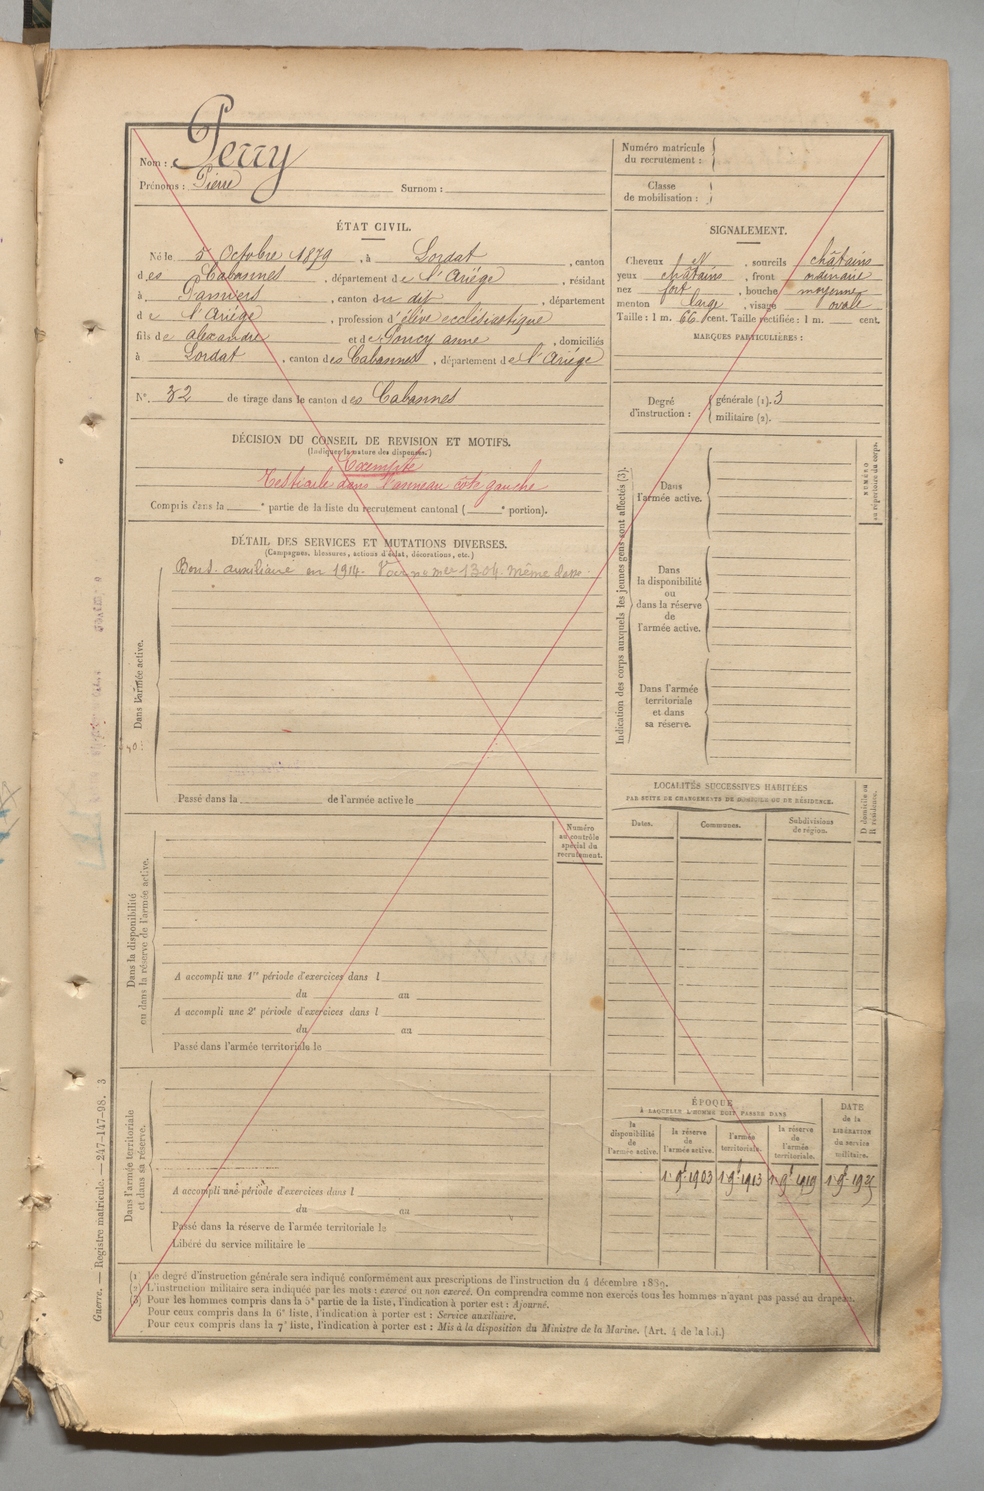 Nom : Perry
Prénoms : Pierre Surnom :
Numéro matricule
du recrutement :
Classe
de mobilisation :
ÉTAT CIVIL.
Né le 5 Octobre 1879, à Lordat, canton
des Cabannes, département de l'Ariége, résidant
à Pamiers, canton du dit, département
de l'Ariége, profession d'élève ecclésiastique
fils de Alexandre et de Goucy anne, domiciliés
à Lordat, canton des Cabannes, département de l'Ariége
N° 32 de tirage dans le canton des Cabannes
SIGNALEMENT.
Cheveux N, sourcils châtains
yeux châtains, front ordinaire
nez fort, bouche moyenne
menton large, visage ovale
Taille : 1 m. 66 cent. Taille rectifiée : 1 m. cent.
MARQUES PARTICULIÈRES :
Degré
d'instruction :
générale (1). 3
militaire (2).
DÉCISION DU CONSEIL DE REVISION ET MOTIFS.
(Indiquer la nature des dispenses.)
Exempté
Testicule dans l'anneau côté gauche
Compris dans la e partie de la liste du recrutement cantonal ( e portion).
DÉTAIL DES SERVICES ET MUTATIONS DIVERSES.
(Campagnes, blessures, actions d'éclat, décorations, etc.)
Bon s. auxiliaire en 1914. Voir no mle 1304 même classe
Dans l'armée active.
Passé dans la de l'armée active le
Indication des corps auxquels les jeunes gens sont affectés (3).
Dans
l'armée active.
Dans
la disponibilité
ou
dans la réserve
de
l'armée active.
Dans l'armée
territoriale
et dans
sa réserve.
NUMÉRO
au répertoire du corps.
LOCALITÉS SUCCESSIVES HABITÉES
PAR SUITE DE CHANGEMENTS DE DOMICILE OU DE RÉSIDENCE.
Dates.
Communes.
Subdivisions
de région.
D domicile ou
R résidence.
Dans la disponibilité
ou dans la réserve de l'armée active.
Numéro
au contrôle
spécial du
recrutement.
A accompli une 1re période d'exercices dans l
du au
A accompli une 2e période d'exercices dans l
du au
Passé dans l'armée territoriale le
Dans l'armée territoriale
et dans sa réserve.
A accompli une période d'exercices dans l
du au
Passé dans la réserve de l'armée territoriale le
Libéré du service militaire le
ÉPOQUE
À LAQUELLE L'HOMME DOIT PASSER DANS
la
disponibilité
de
l'armée active.
la réserve
de
l'armée active.
l'armée
territoriale.
la réserve
de
l'armée
territoriale.
DATE
de la
LIBÉRATION
du service
militaire.
1 9e 1903 1 9e 1913 1 9e 1919 1 9e 1925
(1) Le degré d'instruction générale sera indiqué conformément aux prescriptions de l'instruction du 4 décembre 1889.
(2) L'instruction militaire sera indiquée par les mots : exercé ou non exercé. On comprendra comme non exercés tous les hommes n'ayant pas passé au drapeau.
(3) Pour les hommes compris dans la 5e partie de la liste, l'indication à porter est : Ajourné.
Pour ceux compris dans la 6e liste, l'indication à porter est : Service auxiliaire.
Pour ceux compris dans la 7e liste, l'indication à porter est : Mis à la disposition du Ministre de la Marine. (Art. 4 de la loi.)
Guerre. — Registre matricule. — 247-147-98. 3